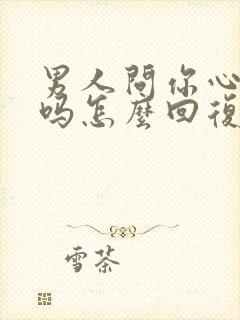 男人問你心
吗怎麼回復
雪茶